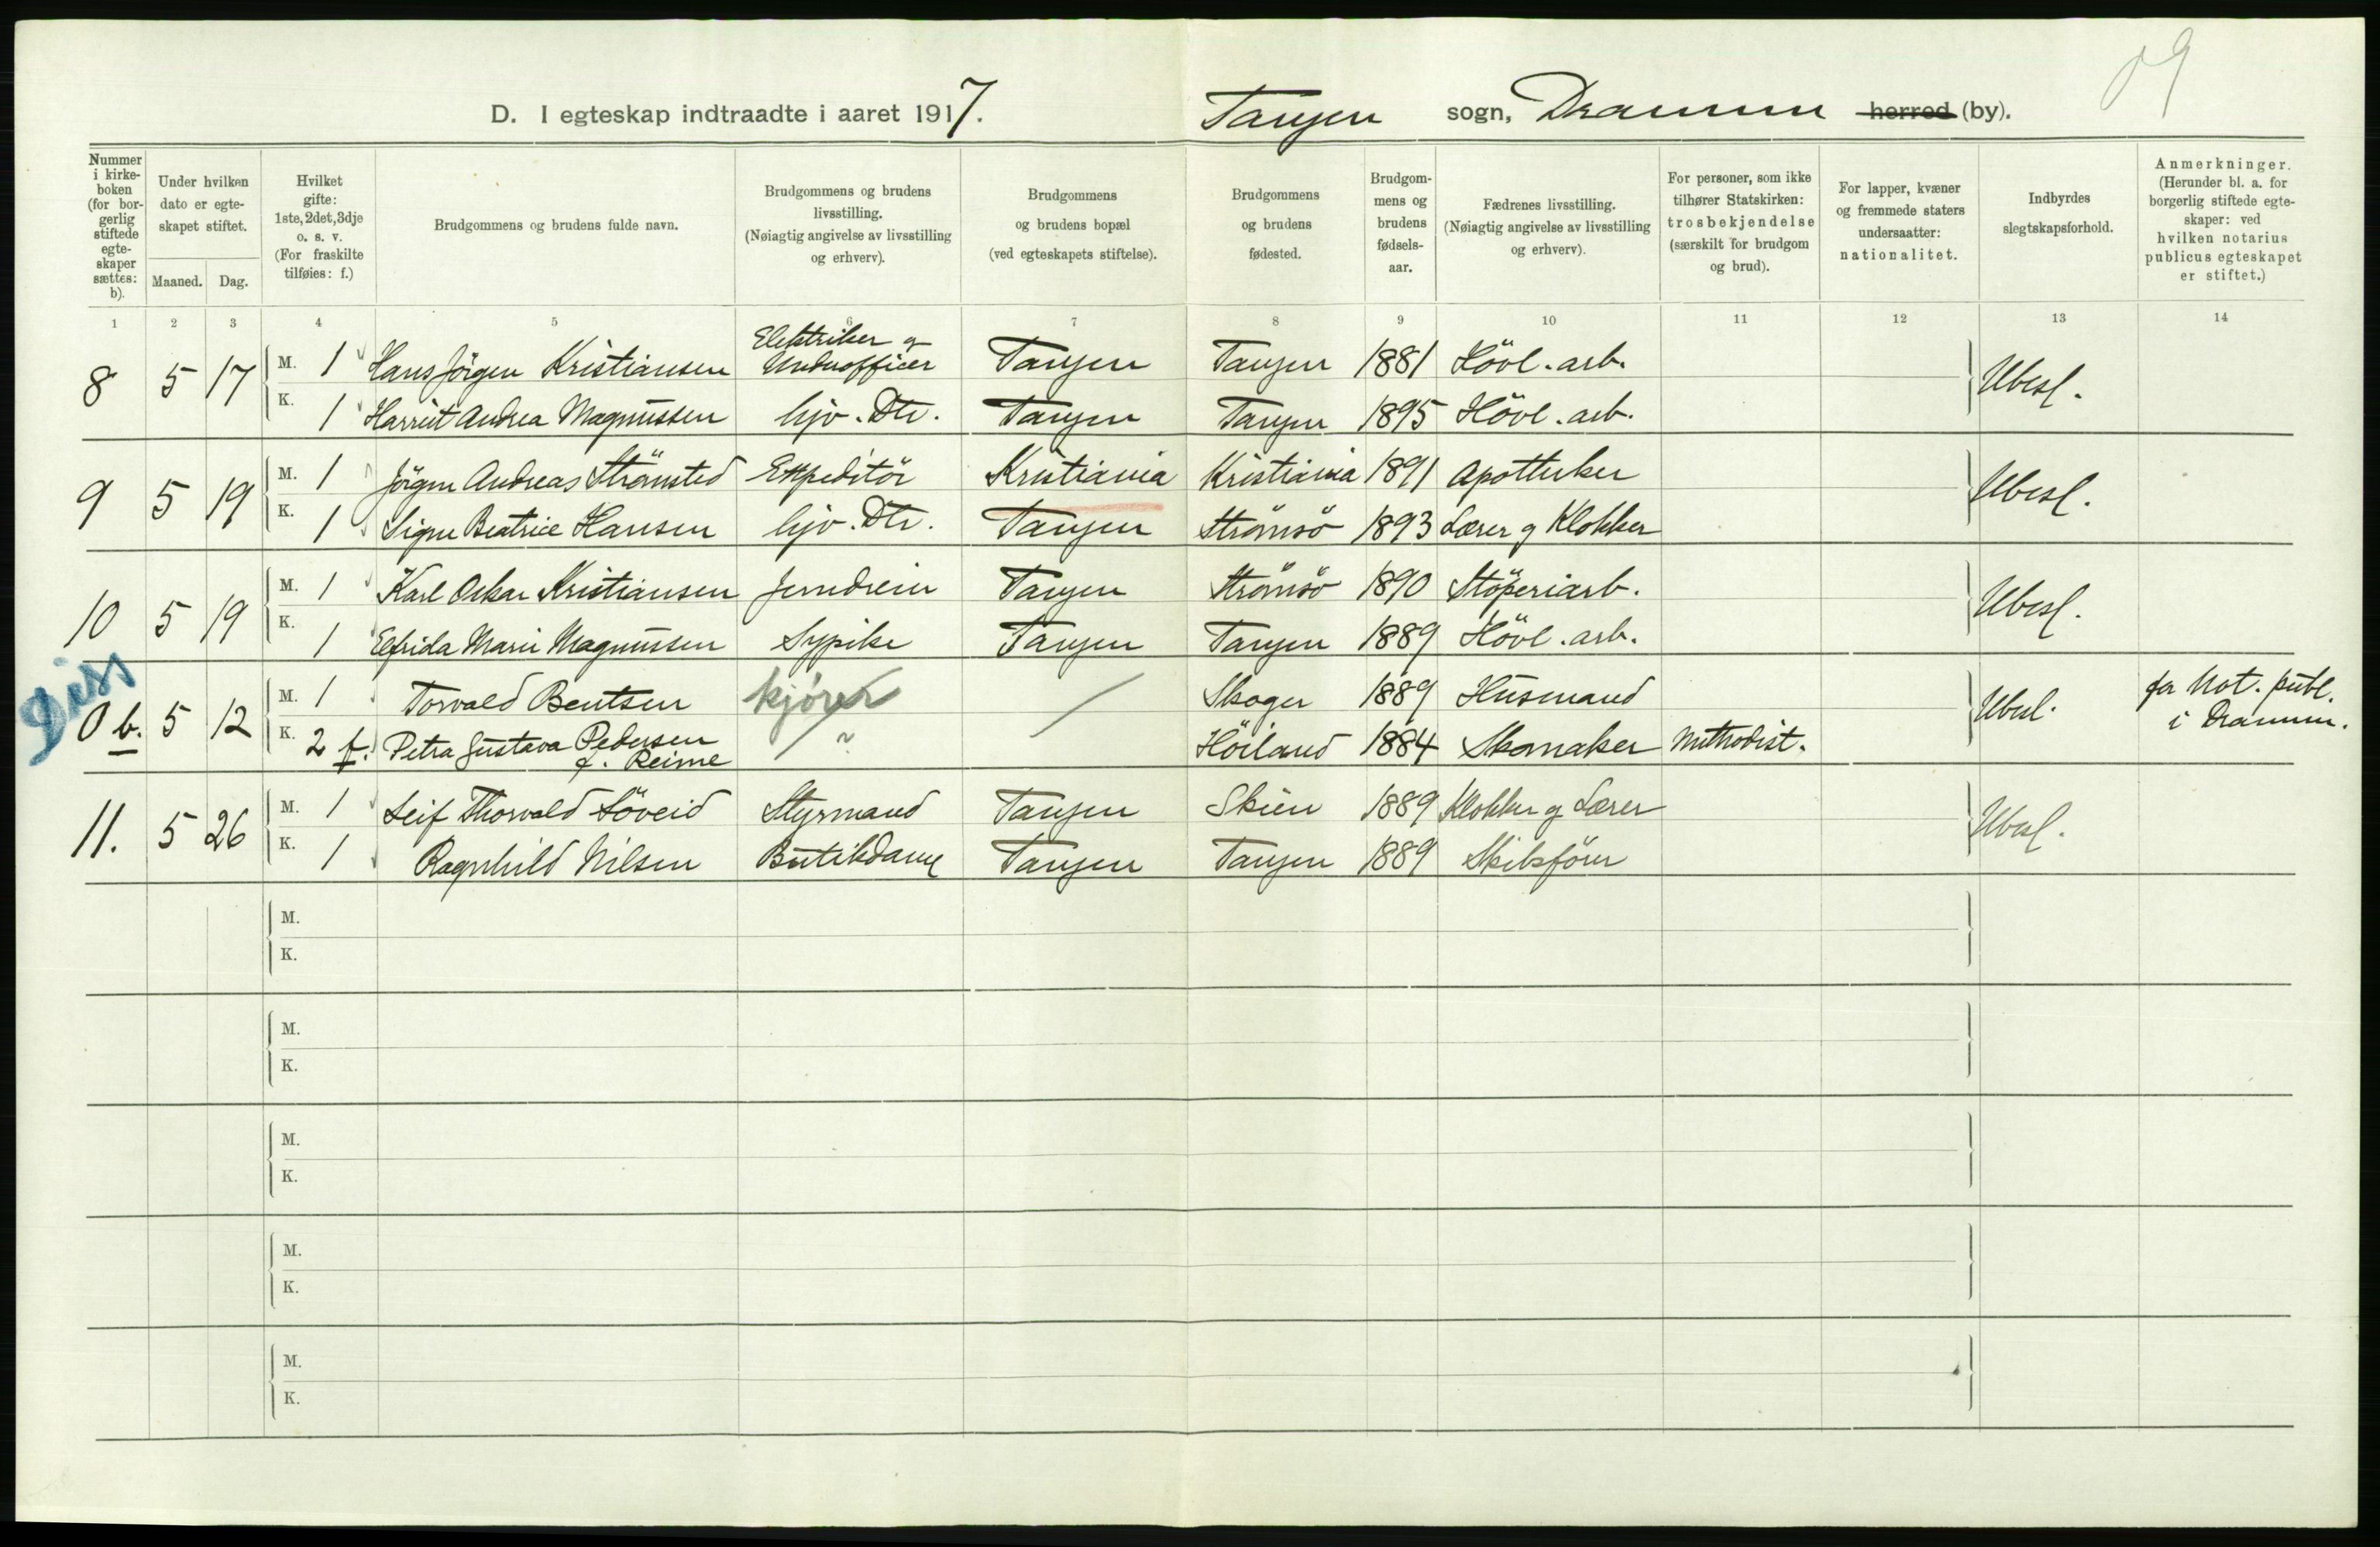 09
D. I egteskap indtraadte i aaret 1917. Tangen sogn, Drammen herred (by).
Nummer i kirkeboken (for borgerlig stiftede egteskaper sættes: b).
Under hvilken dato er egteskapet stiftet.
Maaned. Dag.
Hvilket gifte: 1ste, 2det, 3dje o. s. v. (For fraskilte tilføies: f.)
Brudgommens og brudens fulde navn.
Brudgommens og brudens livsstilling. (Nøiagtig angivelse av livsstilling og erhverv).
Brudgommens og brudens bopæl (ved egteskapets stiftelse).
Brudgommens og brudens fødested.
Brudgommens og brudens fødselsaar.
Fædrenes livsstilling. (Nøiagtig angivelse av livsstilling og erhverv).
For personer, som ikke tilhører Statskirken: trosbekjendelse (særskilt for brudgom og brud).
For lapper, kvæner og fremmede staters undersaatter: nationalitet.
Indbyrdes slegtskapsforhold.
Anmerkninger. (Herunder bl. a. for borgerlig stiftede egteskaper: ved hvilken notarius publicus egteskapet er stiftet.)
1 2 3 4 5 6 7 8 9 10 11 12 13 14
8 5 17 M. 1 Hans Jörgen Kristiansen Elektriker og Underofficer Tangen Tangen 1881 Hövl. arb. Ubesl.
K. 1 Harriet Andrea Magnussen hjv. Dtr. Tangen Tangen 1895 Hövl. arb.
9 5 19 M. 1 Jörgen Andreas Strömsted Expeditör Kristiania Kristiania 1891 Apotheker Ubesl.
K. 1 Signe Beatrice Hansen hjv. Dtr. Tangen Strömsö 1893 Lærer og Klokker
10 5 19 M. 1 Karl Oskar Kristiansen Jerndreier Tangen Strömsö 1890 Stöperiarb. Ubesl.
K. 1 Elfrida Marie Magnussen Sypike Tangen Tangen 1889 Hövl. arb.
Diss
0 b. 5 12 M. 1 Torvald Bentsen kjører Skoger 1889 Husmand Ubesl. for Not. publ. i Drammen.
K. 2 f. Petra Gustava Pedersen f. Reime ~ Höiland 1884 Skomaker Methodist.
11. 5 26 M. 1 Leif Thorvald Löveid Styrmand Tangen Skien 1889 Klokker og Lærer Ubesl.
K. 1 Ragnhild Nilsen Butikdame Tangen Tangen 1889 Skibsförer
M.
K.
M.
K.
M.
K.
M.
K.
M.
K.